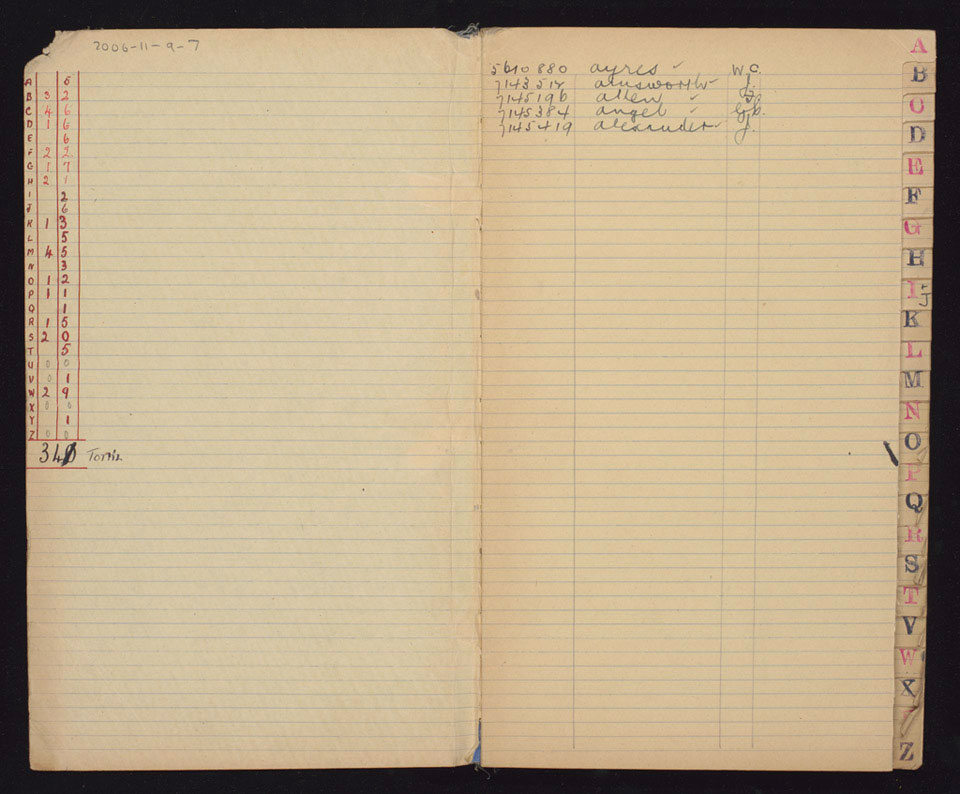 2006-11-9-7
A 5
B 3 2
C 4 6
D 1 6
E 6
F 2 2
G 1 7
H 2 1
I 2
J 6
K 1 3
L 5
M 4 5
N 3
O 1 2
P 1 1
Q 1
R 1 5
S 2 0
T 5
U 0 0
V 0 1
W 2 9
X 0 0
Y 1
Z 0 0
34
5610880 ayres W.C.
7143512 ainsworth J.
7145196 allen
7145384 angel
7145419 alexander J.
A
B
C
D
E
F
G
H
I + J
K
L
M
N
O
P
Q
R
S
T
V
W
X
Z